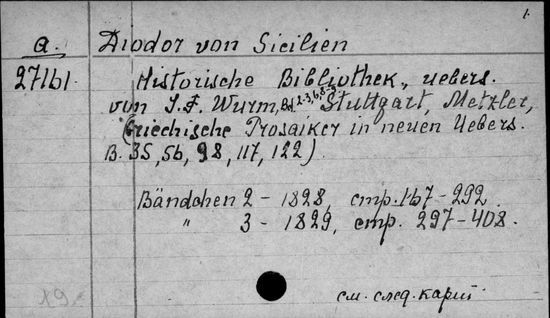 1.
a. Diodor von Sicilien
27161 Historische Bibliothek, uebers.
von J. F. Wurm, Bd. 2-3, 6, 8-9. Stuttgart, Metzler,
(Griechische Prosaiker in neuen Uebers.
B. 35, 56, 98, 117, 122).
Bändchen 2 - 1828, cmp. 167-292.
" 3 - 1829, cmp. 297-408.
см. след. карт